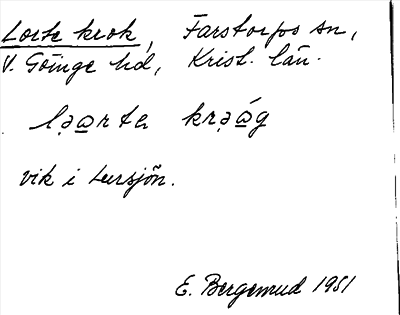 Lorte krok, Farstorps sn,
V. Göinge hd, Krist. län.
lạa̲rta krạá̲g
vik i Lursjön.
E. Bergemud 1951